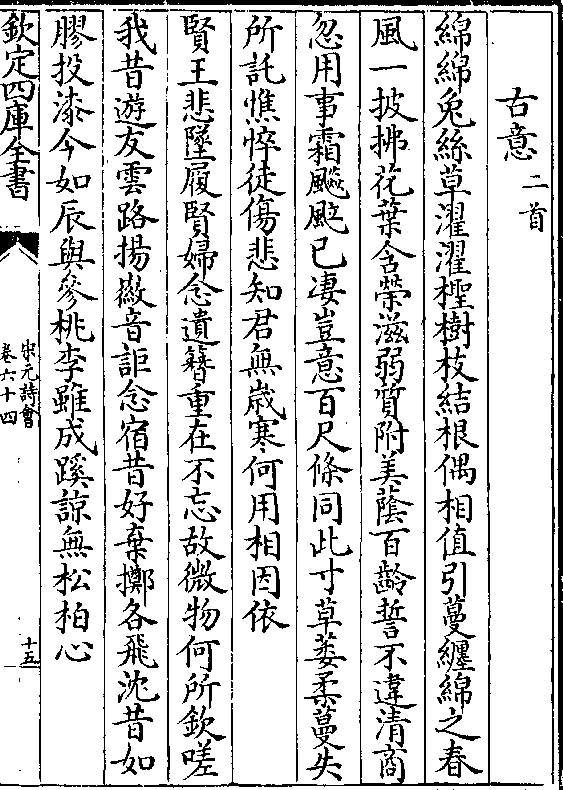 古意二首
綿綿兔絲草濯濯檉樹枝結根偶相值引蔓纏綿之春
風一披拂花葉含榮滋弱質附美蔭百齡誓不違清商
忽用事霜飈颭已凄豈意百尺條同此寸草萎柔蔓失
所託憔悴徒傷悲知君無歲寒何用相因依
賢王悲墜履賢婦念遺簪重在不忘故微物何所欽嗟
我昔遊友雲路揚徽音詎念宿昔好棄擲各飛沈昔如
膠投漆今如辰與參桃李雖成蹊諒無松柏心
欽定四庫全書
宋元詩會
卷六十四
十五